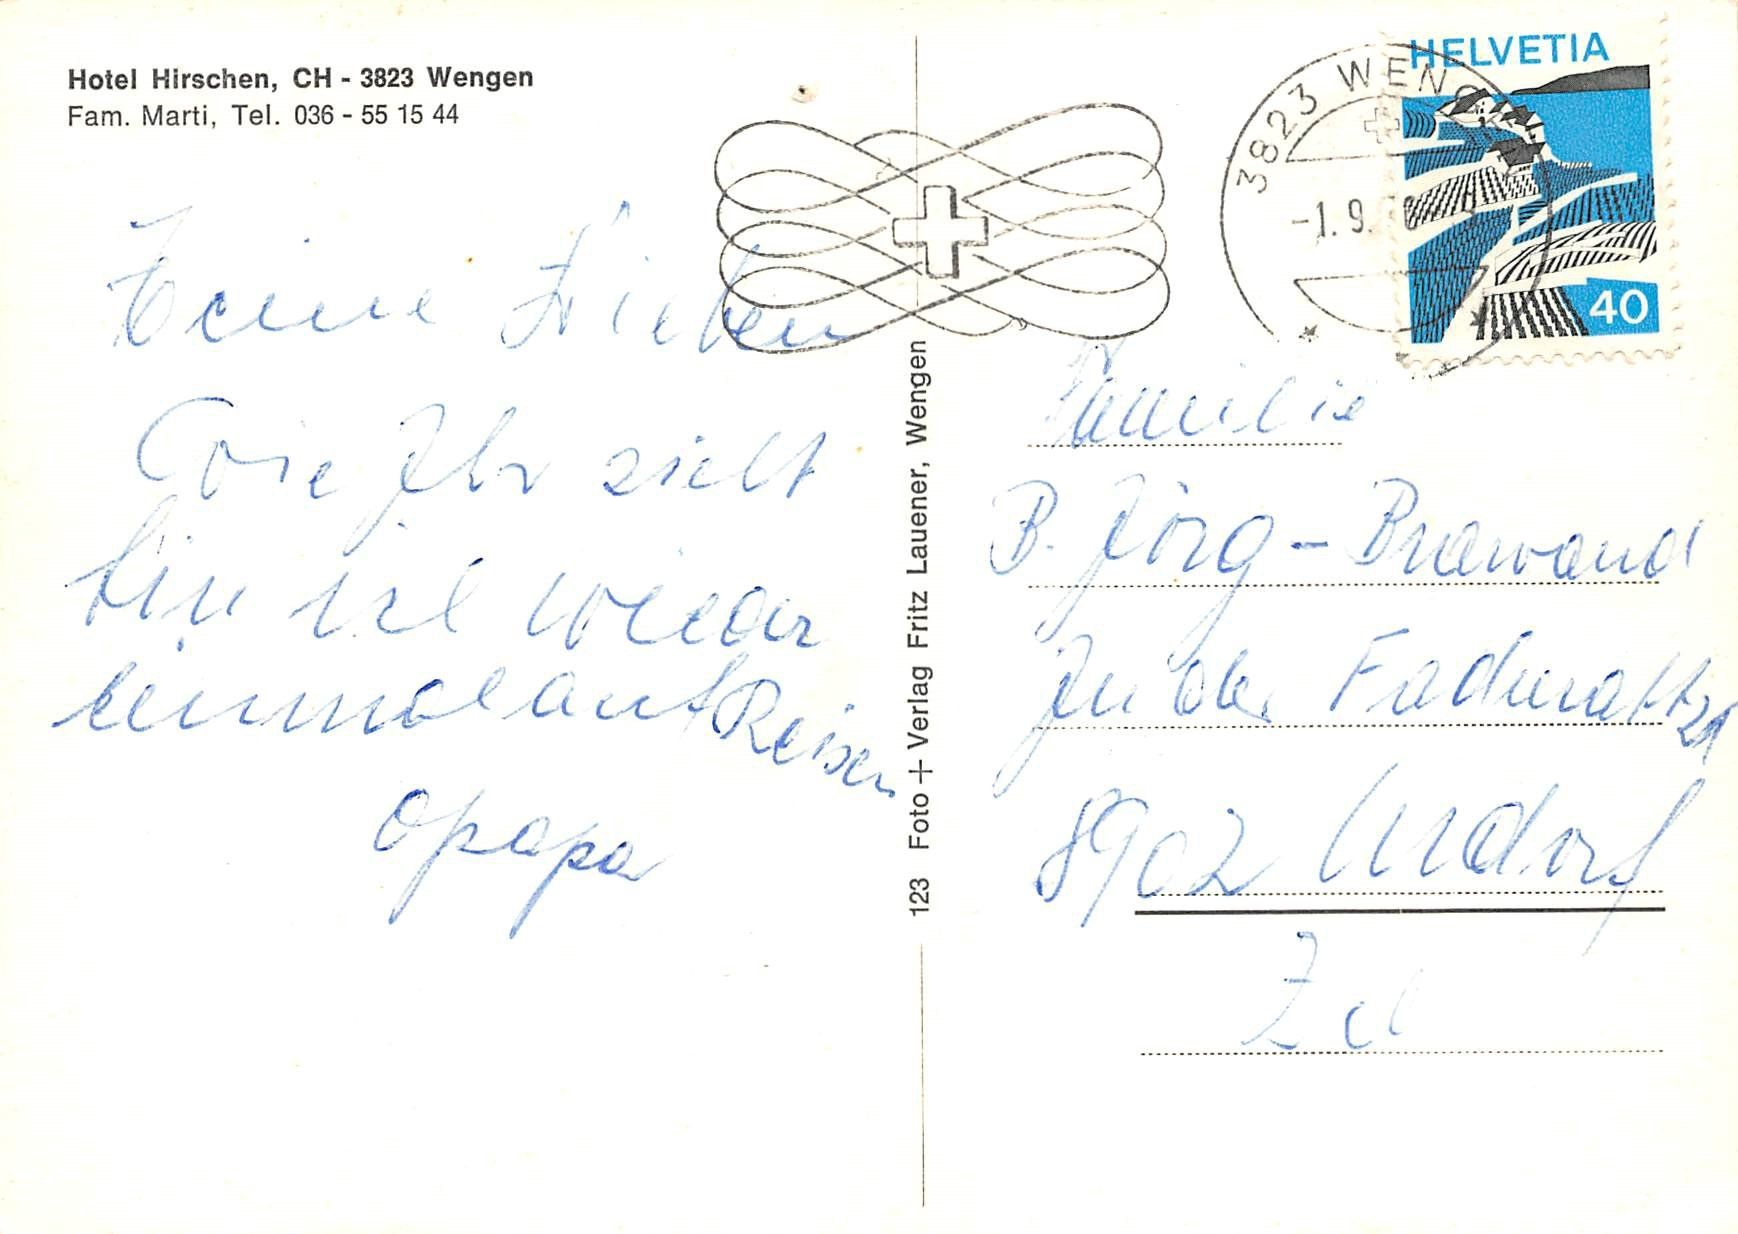 Hotel Hirschen, CH - 3823 Wengen
Fam. Marti, Tel. 036 - 55 15 44
Meine Lieben
Wie Ihr sieht
bin ich wieder
einmal auf Reisen
Opapa
123 Foto + Verlag Fritz Lauener, Wengen
3823 WENGEN
-1.9.
HELVETIA
40
Familie
B. Jörg - Brawand
In der Fadmatt 21
8902 Urdorf
Zch